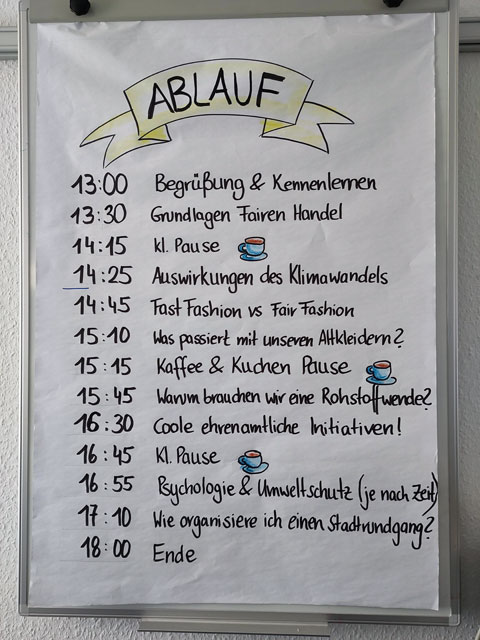 ABLAUF
13:00 Begrüßung & Kennenlernen
13:30 Grundlagen Fairen Handel
14:15 kl. Pause
14:25 Auswirkungen des Klimawandels
14:45 Fast Fashion vs Fair Fashion
15:10 Was passiert mit unseren Altkleidern?
15:15 Kaffee & Kuchen Pause
15:45 Warum brauchen wir eine Rohstoffwende?
16:30 Coole ehrenamtliche Initiativen!
16:45 Kl. Pause
16:55 Psychologie & Umweltschutz (je nach Zeit)
17:10 Wie organisiere ich einen Stadtrundgang?
18:00 Ende